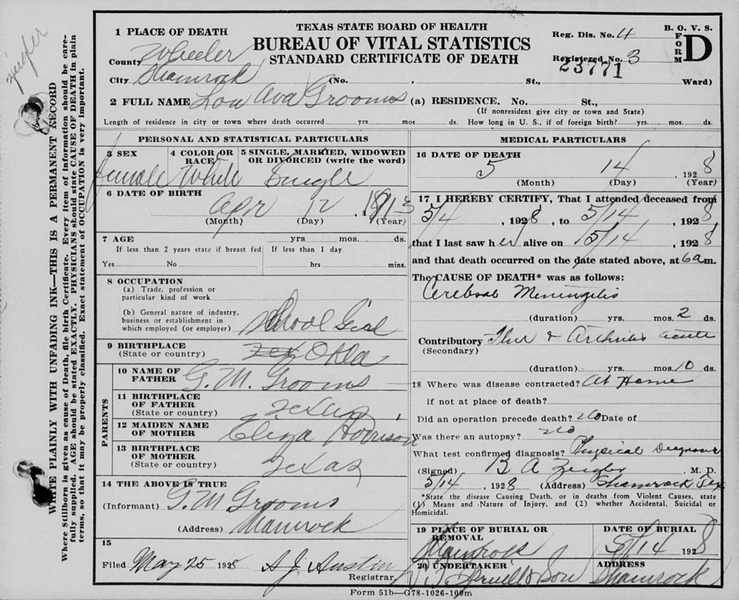 Zeigler
WRITE PLAINLY WITH UNFADING INK—THIS IS A PERMANENT RECORD
Where Stillborn is given as cause of Death, file birth Certificate. Every item of information should be carefully supplied. AGE should be stated EXACTLY. PHYSICIANS should state CAUSE OF DEATH in plain terms, so that it may be properly classified. Exact statement of OCCUPATION is very important.
TEXAS STATE BOARD OF HEALTH
BUREAU OF VITAL STATISTICS
STANDARD CERTIFICATE OF DEATH
Reg. Dis. No. 4
B. O. V. S.
FORM D
Registered No. 3
23771
1 PLACE OF DEATH
County Wheeler
City Shamrock (No. St., Ward)
2 FULL NAME Lou Ava Grooms (a) RESIDENCE. No. St.,
(If nonresident give city or town and State)
Length of residence in city or town where death occurred yrs. mos. ds. How long in U. S., if of foreign birth? yrs. mos. ds.
PERSONAL AND STATISTICAL PARTICULARS
3 SEX 4 COLOR OR RACE 5 SINGLE, MARRIED, WIDOWED OR DIVORCED (write the word)
female White Single
6 DATE OF BIRTH Apr 12 1913
(Month) (Day) (Year)
7 AGE yrs mos ds
If less than 2 years state if breast fed If less than 1 day
Yes No hrs mins
8 OCCUPATION
(a) Trade, profession or particular kind of work
(b) General nature of industry, business or establishment in which employed (or employer) School Girl
9 BIRTHPLACE (State or country) Tex Okla
PARENTS
10 NAME OF FATHER G. M. Grooms
11 BIRTHPLACE OF FATHER (State or country) Texas
12 MAIDEN NAME OF MOTHER Eliza Horrison
13 BIRTHPLACE OF MOTHER (State or country) Texas
14 THE ABOVE IS TRUE
(Informant) G. M. Grooms
(Address) Shamrock
15
Filed May 25 1928 A J. Austin
Registrar
MEDICAL PARTICULARS
16 DATE OF DEATH
5 14 1928
(Month) (Day) (Year)
17 I HEREBY CERTIFY, That I attended deceased from
5/4, 1928, to 5/14, 1928
that I last saw her alive on 5/14, 1928
and that death occurred on the date stated above, at 6 a m.
The CAUSE OF DEATH* was as follows:
Cerebral Meningitis
(duration) yrs. mos. 2 ds.
Contributory Flu & Arthritis acute
(Secondary)
(duration) yrs. mos. 10 ds.
18 Where was disease contracted? At Home
if not at place of death?
Did an operation precede death? no Date of
Was there an autopsy? no
What test confirmed diagnosis? Physical Diagnosis
(Signed) B A Zeigler M. D.
5/14 1928 (Address) Shamrock Tex
*State the disease Causing Death, or in deaths from Violent Causes, state (1) Means and Nature of Injury, and (2) whether Accidental, Suicidal or Homicidal.
19 PLACE OF BURIAL OR REMOVAL DATE OF BURIAL
Shamrock 5/14 1928
20 UNDERTAKER ADDRESS
& Son Shamrock
Form 51b—G78-1026-100m